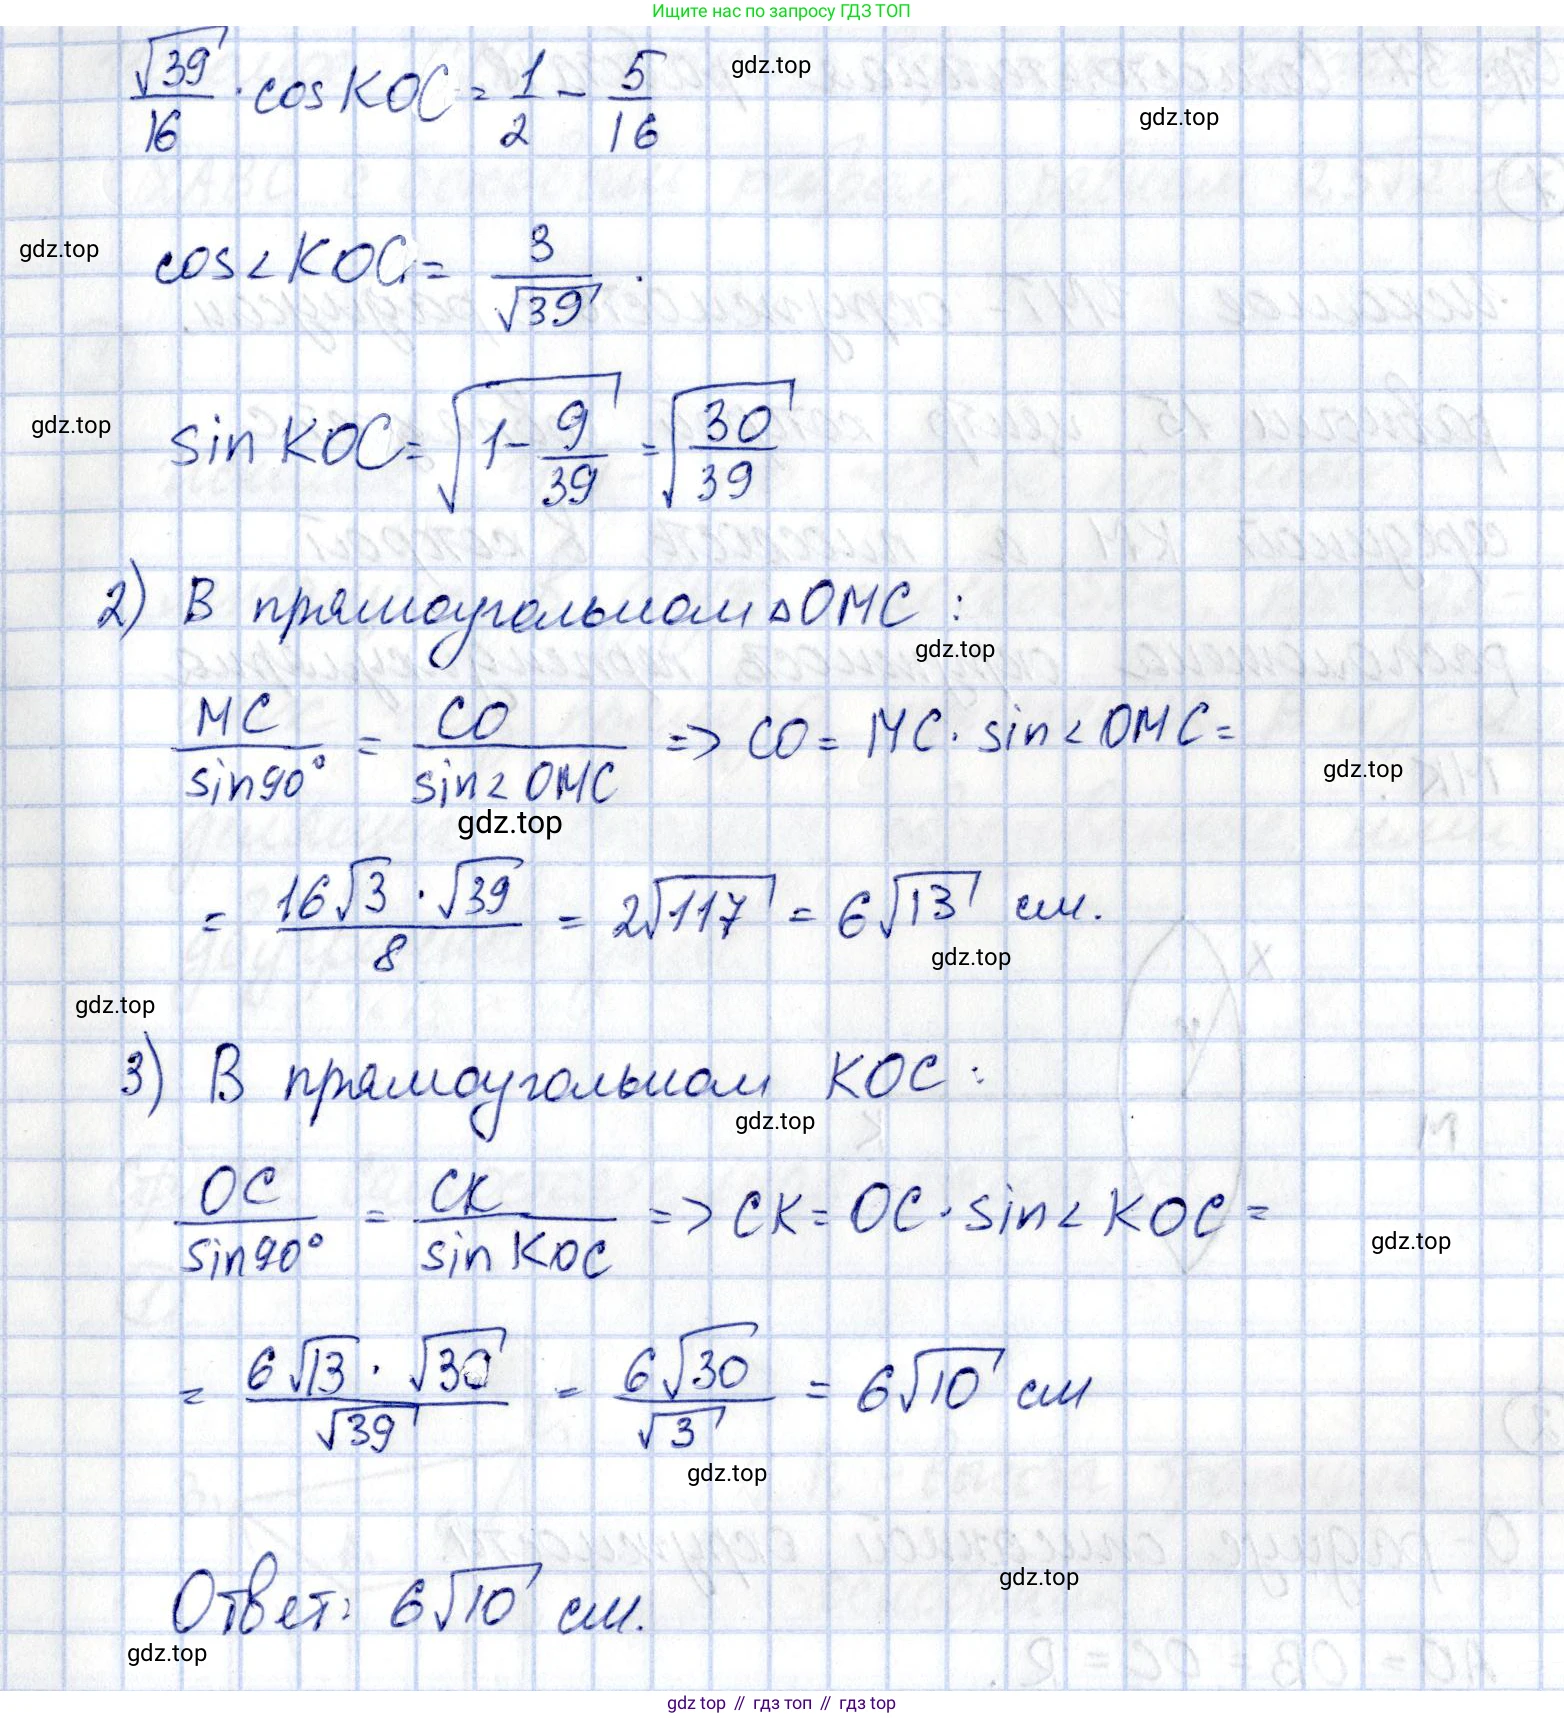 Ищите нас по запросу ГДЗ ТОП
√39/16 · cos KOC = 1/2 − 5/16
gdz.top
gdz.top
gdz.top
cos∠KOC = 3/√39.
gdz.top
sin KOC = √(1 − 9/39) = √(30/39)
2) В прямоугольном △OMC:
gdz.top
MC/sin90° = CO/sin∠OMC => CO = MC · sin∠OMC =
gdz.top
gdz.top
= 16√3 · √39/8 = 2√117 = 6√13 см.
gdz.top
gdz.top
3) В прямоугольном KOC:
gdz.top
OC/sin90° = CK/sin KOC => CK = OC · sin∠KOC =
gdz.top
= 6√13 · √30/√39 = 6√30/√3 = 6√10 см
gdz.top
gdz.top
Ответ: 6√10 см.
gdz.top
gdz top // гдз топ // гдз top